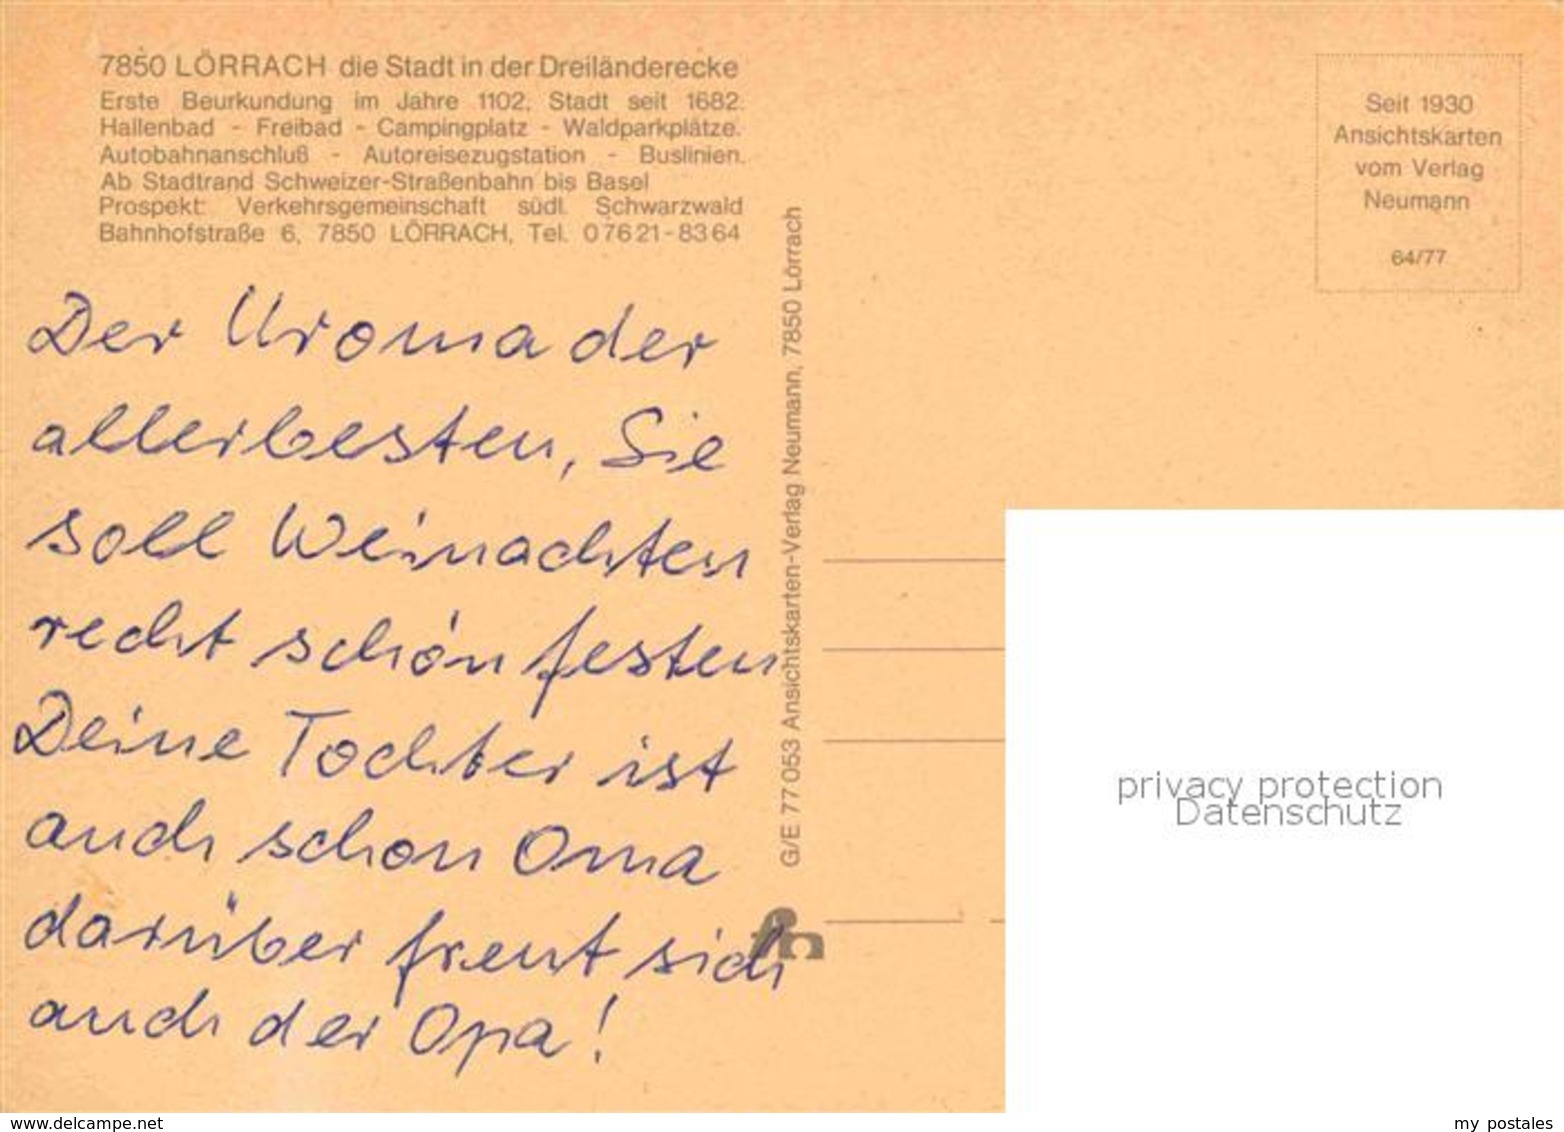 7850 LÖRRACH die Stadt in der Dreiländerecke
Erste Beurkundung im Jahre 1102, Stadt seit 1682.
Hallenbad - Freibad - Campingplatz - Waldparkplätze.
Autobahnanschluß - Autoreisezugstation - Buslinien.
Ab Stadtrand Schweizer-Straßenbahn bis Basel
Prospekt: Verkehrsgemeinschaft südl. Schwarzwald
Bahnhofstraße 6, 7850 LÖRRACH, Tel. 07621-8364
Der Uroma der
allerbesten, Sie
soll Weinachten
recht schön festen
Deine Tochter ist
auch schon Oma
darüber freut sich
auch der Opa!
G/E 77 053 Ansichtskarten-Verlag Neumann, 7850 Lörrach
Seit 1930
Ansichtskarten
vom Verlag
Neumann
64/77
privacy protection
Datenschutz
www.delcampe.net
my_postales